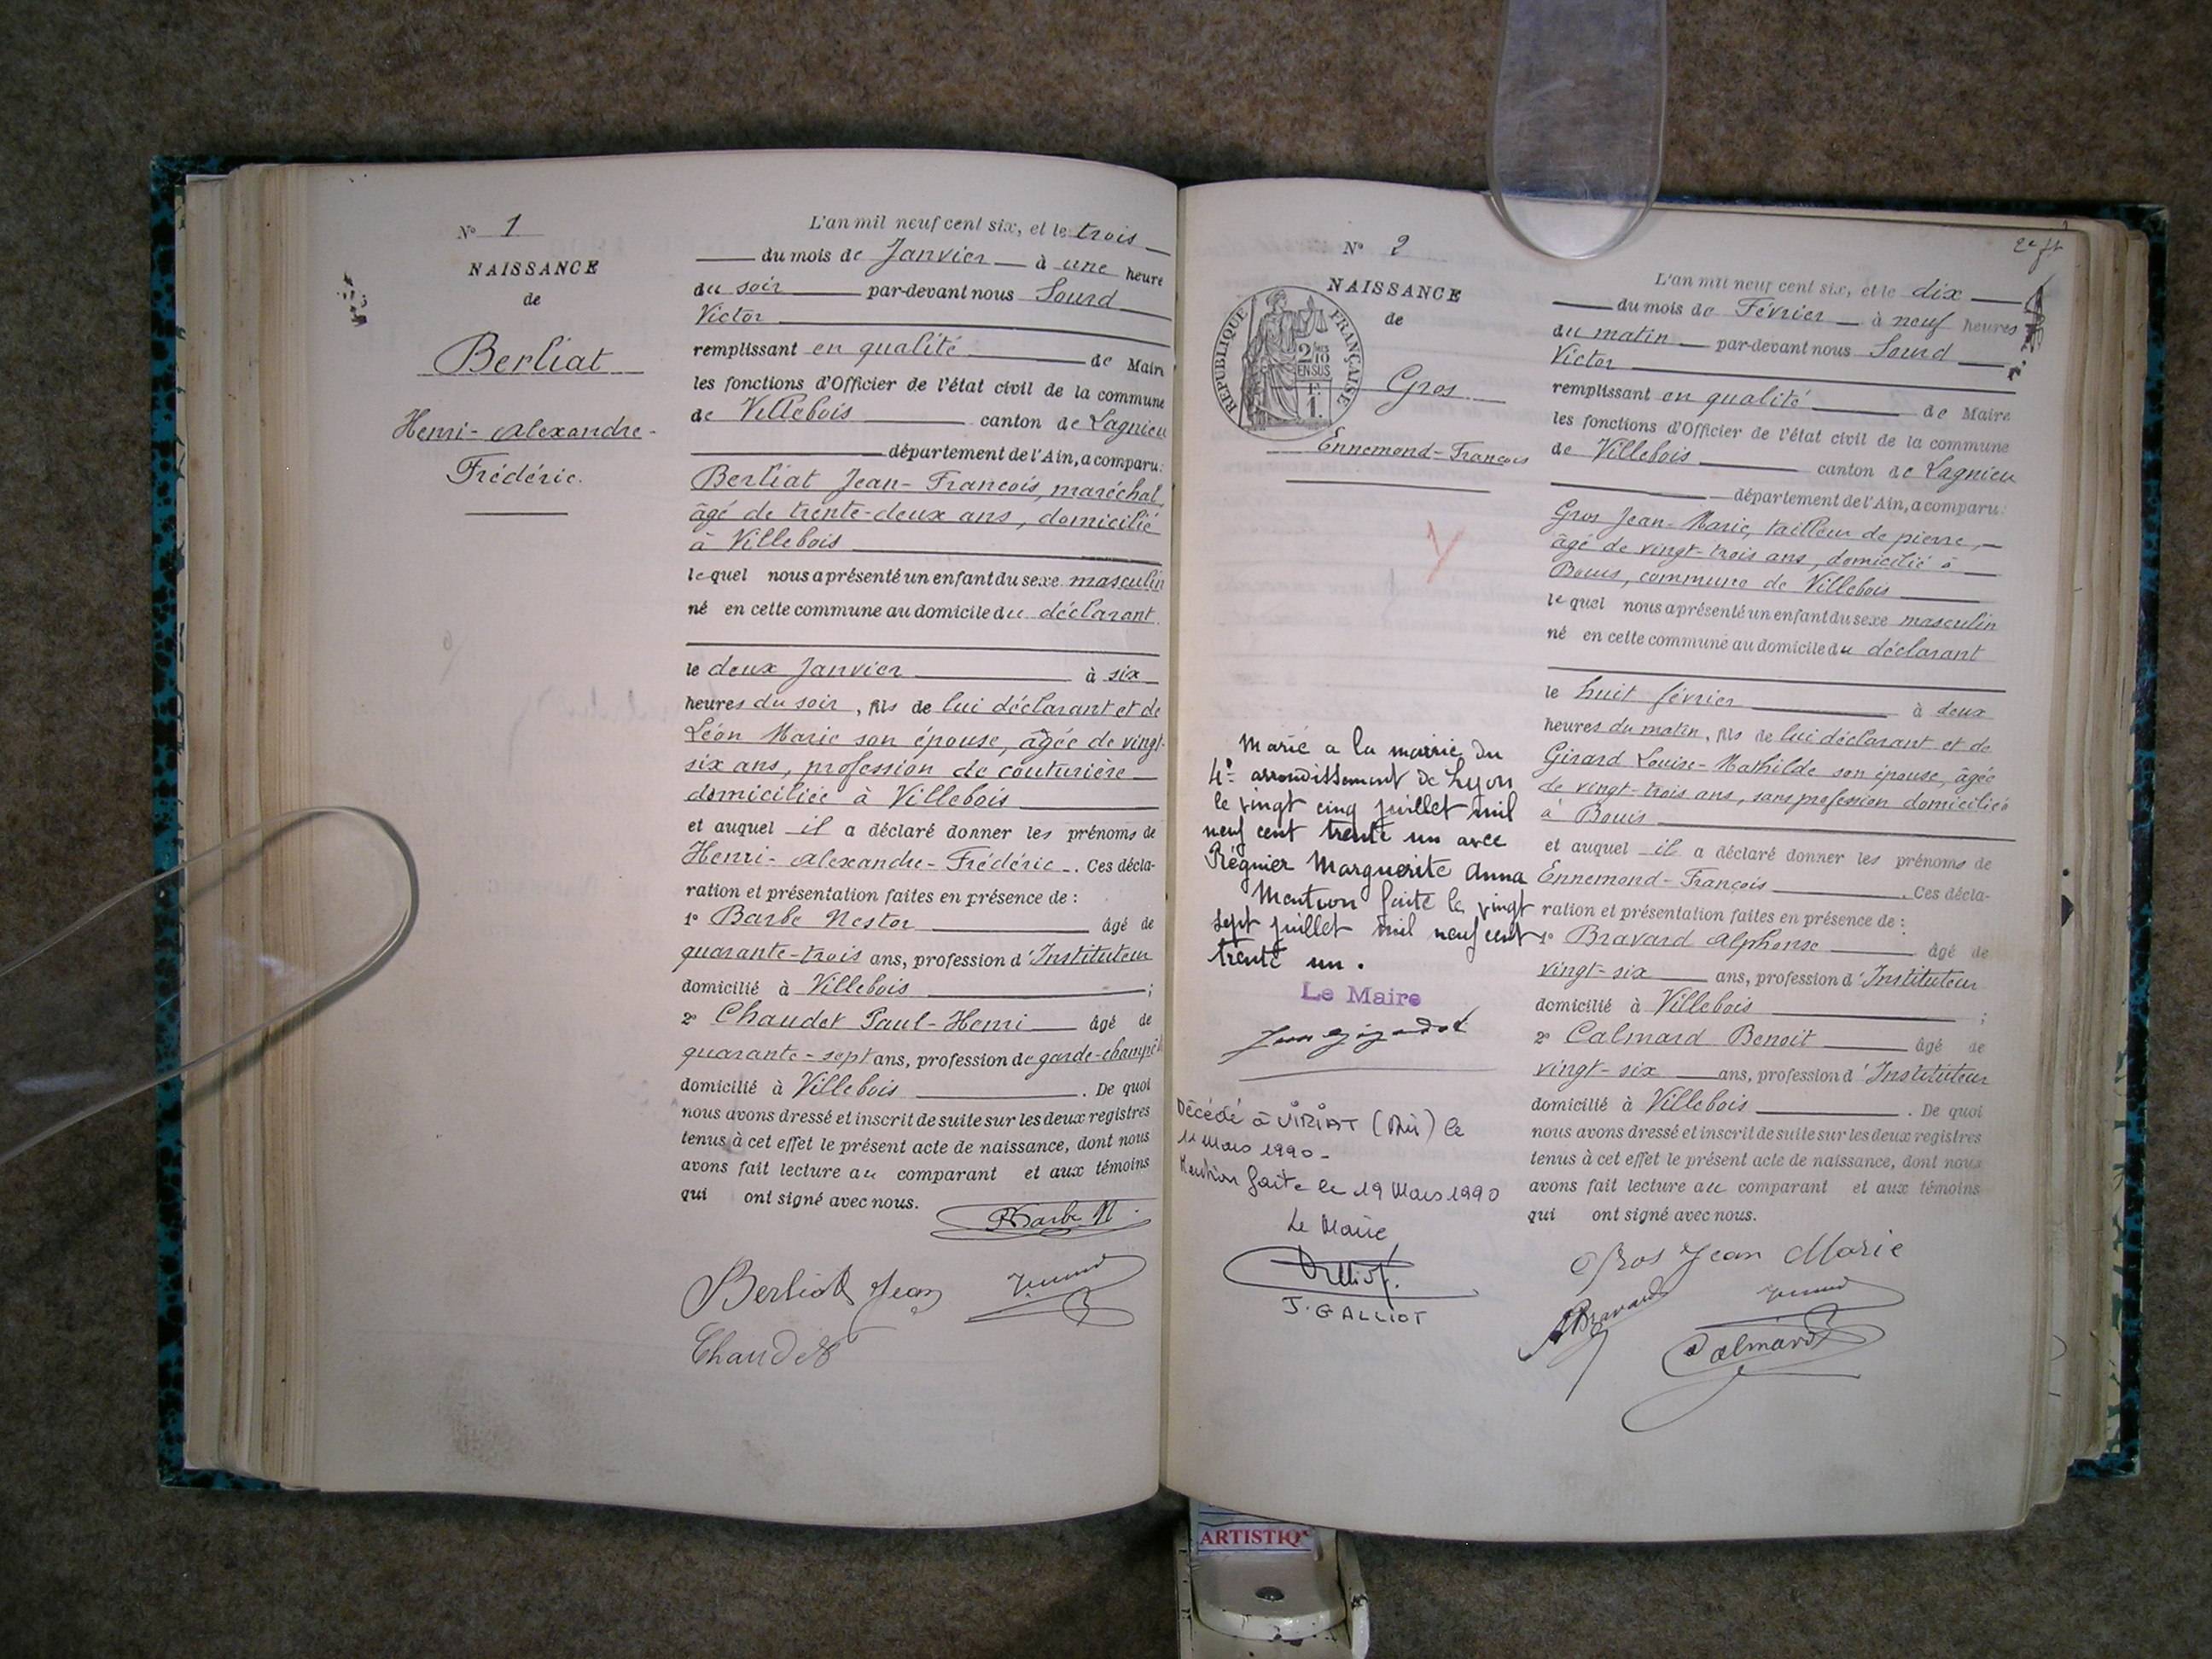 N° 1
NAISSANCE
de
Berliat
Henri-Alexandre-
Frédéric.
L'an mil neuf cent six, et le trois
du mois de Janvier à une heure
du soir par-devant nous Sourd
Victor
remplissant en qualité de Maire
les fonctions d'Officier de l'état civil de la commune
de Villebois canton de Lagnieu
département de l'Ain, a comparu:
Berliat Jean-François, maréchal,
âgé de trente-deux ans, domicilié
à Villebois
lequel nous a présenté un enfant du sexe masculin
né en cette commune au domicile du déclarant
le deux Janvier à six
heures du soir, fils de lui déclarant et de
Léon Marie son épouse, âgée de vingt-
six ans, profession de couturière
domiciliée à Villebois
et auquel il a déclaré donner les prénoms de
Henri-Alexandre-Frédéric. Ces décla-
ration et présentation faites en présence de :
1° Barbe Nestor âgé de
quarante-trois ans, profession d'Instituteur
domicilié à Villebois ;
2° Chaudet Paul-Henri âgé de
quarante-sept ans, profession de garde-champêt
domicilié à Villebois . De quoi
nous avons dressé et inscrit de suite sur les deux registres
tenus à cet effet le présent acte de naissance, dont nous
avons fait lecture au comparant et aux témoins
qui ont signé avec nous.
Barbe N
Berliat Jean
Chaudet
2e ft
N° 2
NAISSANCE
de
RÉPUBLIQUE FRANÇAISE
2/10
EN SUS
1.
Gros
Ennemond-François
Marié a la mairie du
4e arrondissement de Lyon
le vingt cinq juillet mil
neuf cent trente un avec
Régnier Marguerite Anna
Mention faite le vingt
sept juillet mil neuf cent
trente un.
Le Maire
Décédé à VIRIAT (Ain) le
mars 1990 -
Mention faite le 19 Mars 1990
Le Maire
J. GALLIOT
L'an mil neuf cent six, et le dix
du mois de Février à neuf heures
du matin par-devant nous Sourd
Victor
remplissant en qualité de Maire
les fonctions d'Officier de l'état civil de la commune
de Villebois canton de Lagnieu
département de l'Ain, a comparu:
Gros Jean-Marie, tailleur de pierre,
âgé de vingt-trois ans, domicilié à
Bouis, commune de Villebois
lequel nous a présenté un enfant du sexe masculin
né en cette commune au domicile du déclarant
le huit février à deux
heures du matin, fils de lui déclarant et de
Girard Louise-Mathilde son épouse, âgée
de vingt-trois ans, sans profession domiciliée
à Bouis
et auquel il a déclaré donner les prénoms de
Ennemond-François . Ces décla-
ration et présentation faites en présence de :
1° Bravard Alphonse âgé de
vingt-six ans, profession d'Instituteur
domicilié à Villebois ;
2° Calmard Benoit âgé de
vingt-six ans, profession d'Instituteur
domicilié à Villebois . De quoi
nous avons dressé et inscrit de suite sur les deux registres
tenus à cet effet le présent acte de naissance, dont nous
avons fait lecture au comparant et aux témoins
qui ont signé avec nous.
Gros Jean Marie
ABravard
Calmard
ARTISTIQ